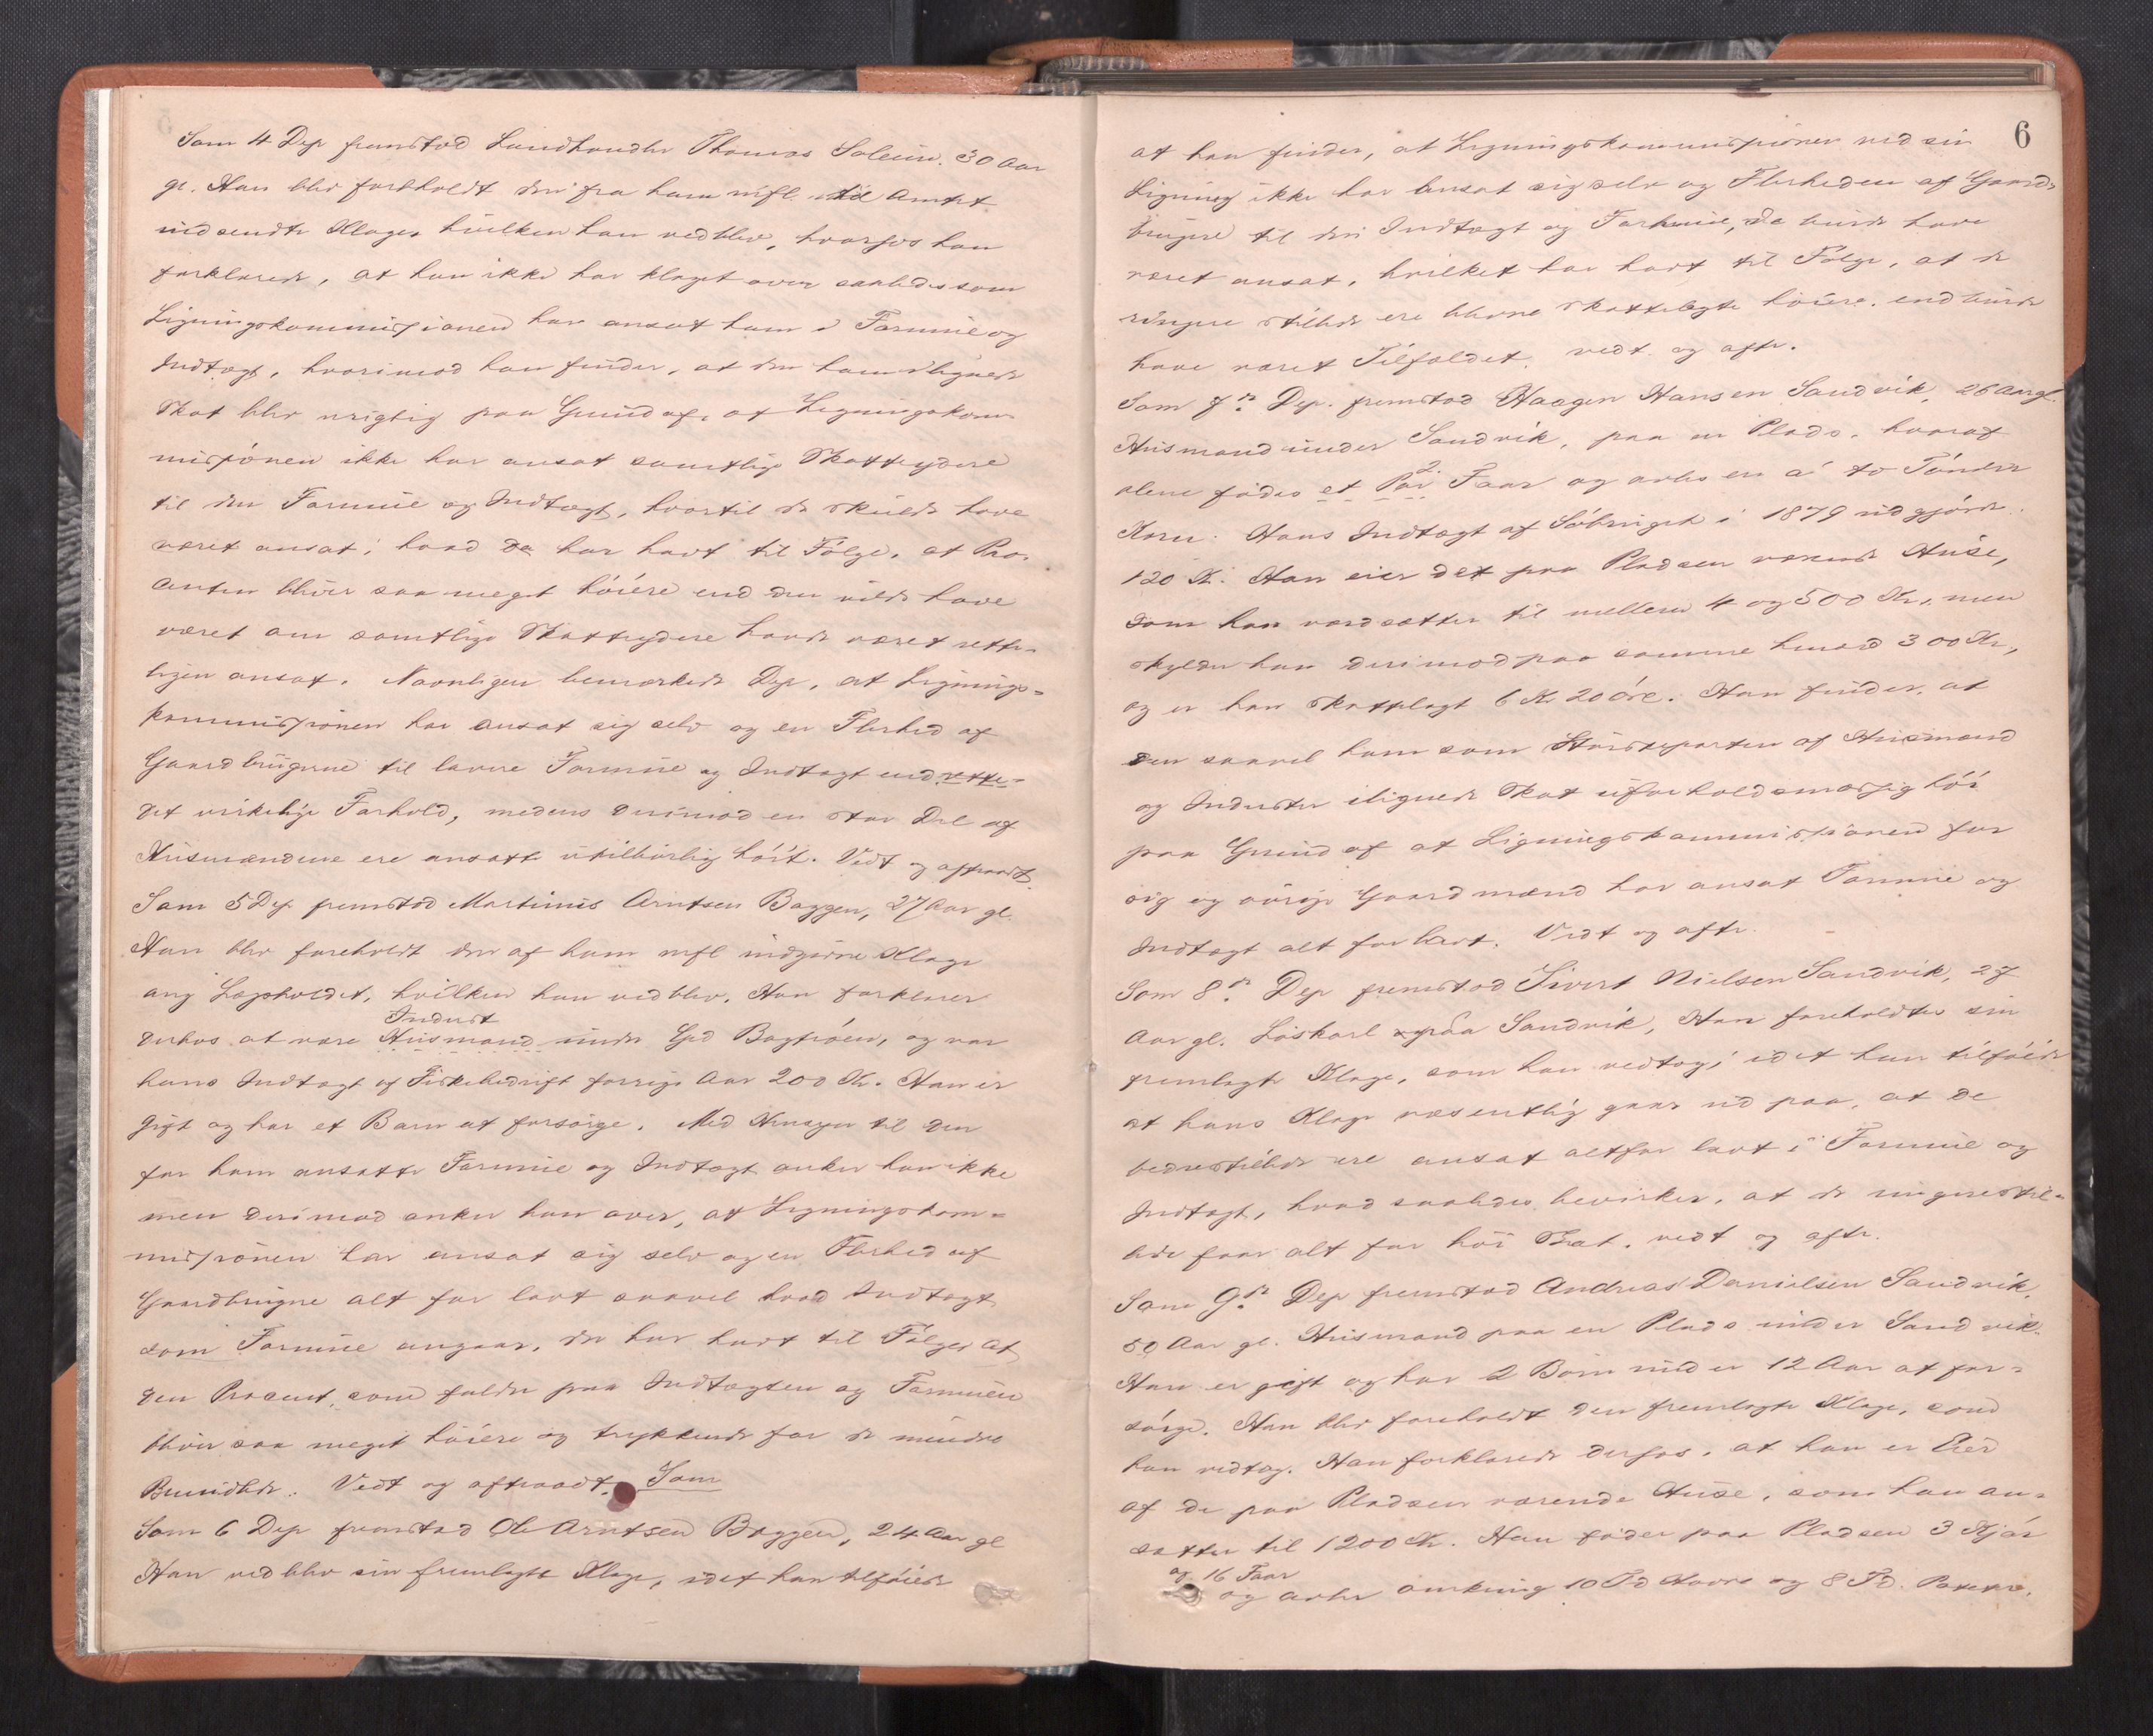 Som 4 Dep fremstod Landhandler Thomas Solem. 30 Aar
gl. Han blev forholdt den fra ham mfl. til Amtet
indsendte Klage, hvilken han vedblev, hvorhos han
forklarede, at han ikke har klaget over saaledes som
Ligningskommissionen har ansat ham i Formue og
Indtægt, hvorimod han finder, at den ham ilignede
Skat blev urigtig paa Grund af, at Ligningskom-
missionen ikke har ansat samtlige Skatteydere
til den Formue og Indtægt, hvortil de skulde have
været ansat; hvad da har havt til Følge, at Pro-
centen bliver saa meget høiere end den vilde have
været om samtlige Skatteydere havde været rette-
ligen ansat. Navnligen bemærkede Dep, at Lignings-
kommissionen har ansat sig selv og en Flerhed af
Gaardbrugerne til lavere Formue og Indtægt end rette-
det virkelige Forhold, medens derimod en stor Del af
Husmændene ere ansatte utilbørlig høit. Vedt og aftraadt.
Som 5 Dep fremstod Martinus Arntsen Baggen, 27 Aar gl.
Han blev foreholdt den af ham mfl indgivne Klage
ang Lægholdet, hvilken han vedblev. Han forklarer
Inderst
derhos at være Husmand under Grd Bagfröen, og var
hans Indtægt af Fiskebedrift forrige Aar 200 Kr. Han er
gift og har et Barn at forsørge. Med Hensyn til den
for ham ansatte Formue og Indtægt anker han ikke
men derimod anker han over, at Ligningskom-
missionen har ansat sig selv og en Flerhed af
Gaardbrugne alt for lavt saavel hvad Indtægt
som Formue angaar, der har havt til Følge, at
den Procent, som falder paa Indtægten og Formuen
bliver saa meget høiere og trykkende for de mindre
Bemidlede. Vedt og aftraadt. Som
Som 6 Dep fremstod Ole Arntsen Baggen, 24 Aar gl
Han vedblev sin fremlagte Klage, idet han tilføiede
6
at han finder, at Ligningskommissionen ved sin
Ligning ikke har ansat sig selv og Flerheden af Gaard-
brugere til den Indtægt og Formue, de burde have
været ansat, hvilket har havt til Følge, at de
ringere stillede ere blevne skattelagte høiere end burde
have været Tilfældet. vedt og aftr.
Som 7de Dep. fremstod Haagen Hansen Sandvik, 26 Aar gl.
Husmand under Sandvik, paa en Plads, hvoraf
2.
alene fødes et Par Faar og avles en á to Tønder
Korn. Hans Indtægt af Söbruget i 1879 udgjörde
120 Kr. Han eier det paa Pladsen værende Huse,
som han værdsætter til mellem 4 og 500 Kr, men
skylder han derimod paa samme henved 300 Kr,
og er han skattelagt 6 Kr 20 Öre. Han finder, at
den saavel ham som Størsteparten af Husmænd
og Inderster ilignede Skat uforholdsmæssig höi
paa Grund af at Ligningskommissionen for
sig og øvrige Gaardmænd har ansat Formue og
Indtægt alt for lavt. Vedt og aftr.
Som 8de Dep fremstod Sivert Nielsen Sandvik, 27
Aar gl. Löskarl paa Sandvik, Han foreholdtes sin
fremlagte Klage, som han vedtog, idet han tilföiede
at hans Klage væsentlig gaar ud paa, at de
bedrestillede ere ansat altfor lavt i Formue og
Indtægt, hvad saaledes bevirker, at de ringerestil-
lede faar alt for höi Skat. vedt og aftr.
Som 9de Dep fremstod Andreas Danielsen Sandvik,
50 Aar gl. Husmand paa en Plads under Sandvik.
Han er gift og har 2 Börn under 12 Aar at for-
sörge. Han blev foreholdt den fremlagte Klage, som
han vedtog. Han forklarede derhos, at han er Eier
af de paa Pladsen værende Huse, som han an-
sætter til 1200 Kr. Han föder paa Pladsen 3 Kjör
og 16 Faar
og avler omkring 10 Td Havre og 8 Td. Poteter.